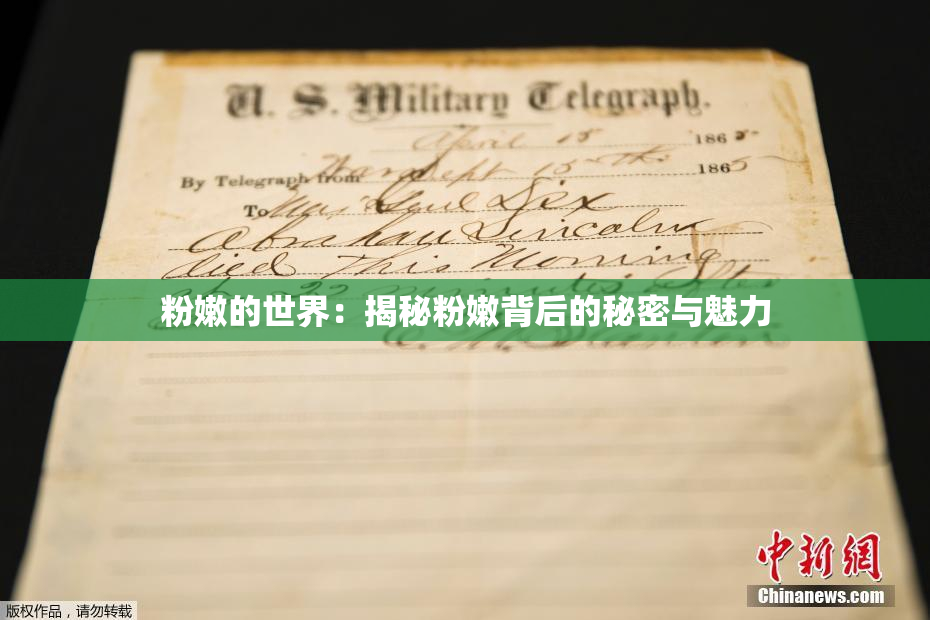 U. S. Military Telegraph.
April 15 1865
By Telegraph from War Dept 15th 1865
To Maj Genl Dix
Abraham Lincoln
died This Morning
at 22 minutes after
粉嫩的世界：揭秘粉嫩背后的秘密与魅力
E. M. Stanton
中新网
Chinanews.com
版权作品，请勿转载